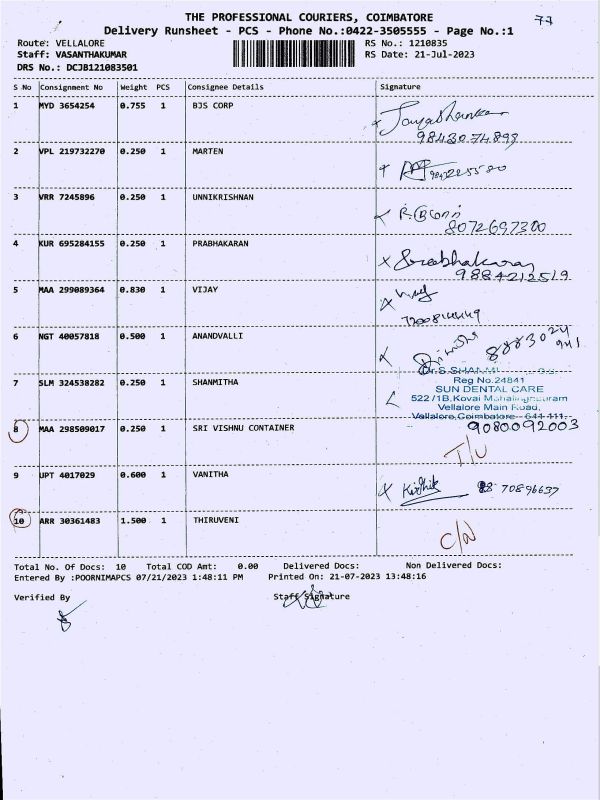 THE PROFESSIONAL COURIERS, COIMBATORE 77
Delivery Runsheet - PCS - Phone No.:0422-3505555 - Page No.:1
Route: VELLALORE RS No.: 1210835
Staff: VASANTHAKUMAR RS Date: 21-Jul-2023
DRS No.: DCJB121083501
S No Consignment No Weight PCS Consignee Details Signature
1 MYD 3654254 0.755 1 BJS CORP
9843074893
2 VPL 219732270 0.250 1 MARTEN
3 VRR 7245896 0.250 1 UNNIKRISHNAN
8072697300
4 KUR 695284155 0.250 1 PRABHAKARAN Prabhakaran
9884212519
5 MAA 299089364 0.830 1 VIJAY Vijay
6 NGT 40057818 0.500 1 ANANDVALLI
Dr.S.SHANMI
7 SLM 324538282 0.250 1 SHANMITHA Reg No.24841
SUN DENTAL CARE
522 /1B,Kovai Mahalingapuram
Vellalore Main Road,
Vellalore,Coimbatore - 641 111.
8 MAA 298509017 0.250 1 SRI VISHNU CONTAINER 9080092003
I/U
9 UPT 4017029 0.600 1 VANITHA Kirthik
10 ARR 30361483 1.500 1 THIRUVENI
C/N
Total No. Of Docs: 10 Total COD Amt: 0.00 Delivered Docs: Non Delivered Docs:
Entered By :POORNIMAPCS 07/21/2023 1:48:11 PM Printed On: 21-07-2023 13:48:16
Verified By Staff Signature